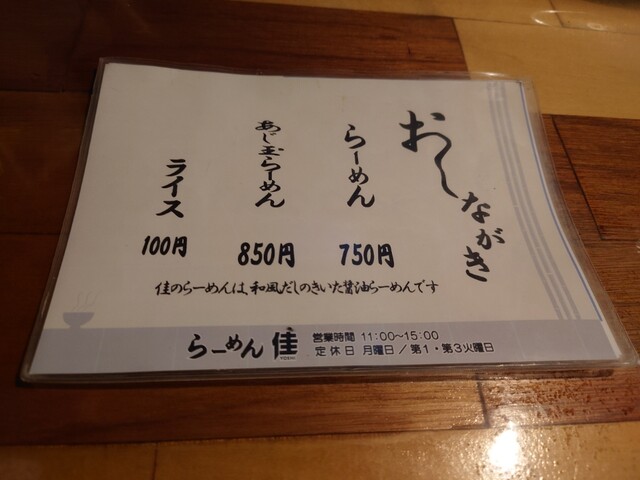 おしながき
らーめん
750円
あじ玉らーめん
850円
ライス
100円
佳のらーめんは、和風だしのきいた醤油らーめんです
らーめん 佳
YOSHI
営業時間 11:00～15:00
定休日 月曜日／第1・第3火曜日